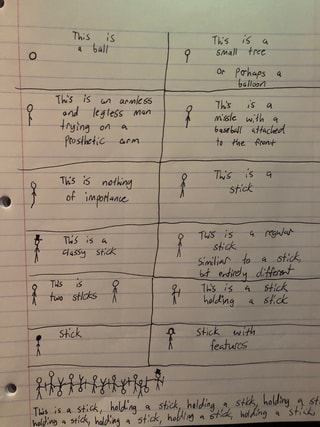 This is
a ball
This is a
small tree
or perhaps a
balloon
This is an armless
and legless man
trying on a
prosthetic arm
This is a
missle with a
baseball attached
to the front
This is nothing
of importance
This is a
stick
This is a
classy stick
This is a regular
stick
similiar to a stick,
but entirely different
This is
two sticks
This is a stick
holding a stick
Stick
Stick with
features
This is a stick, holding a stick, holding a stick, holding a st
holding a stick, holding a stick, holding a stick, holding a stick,